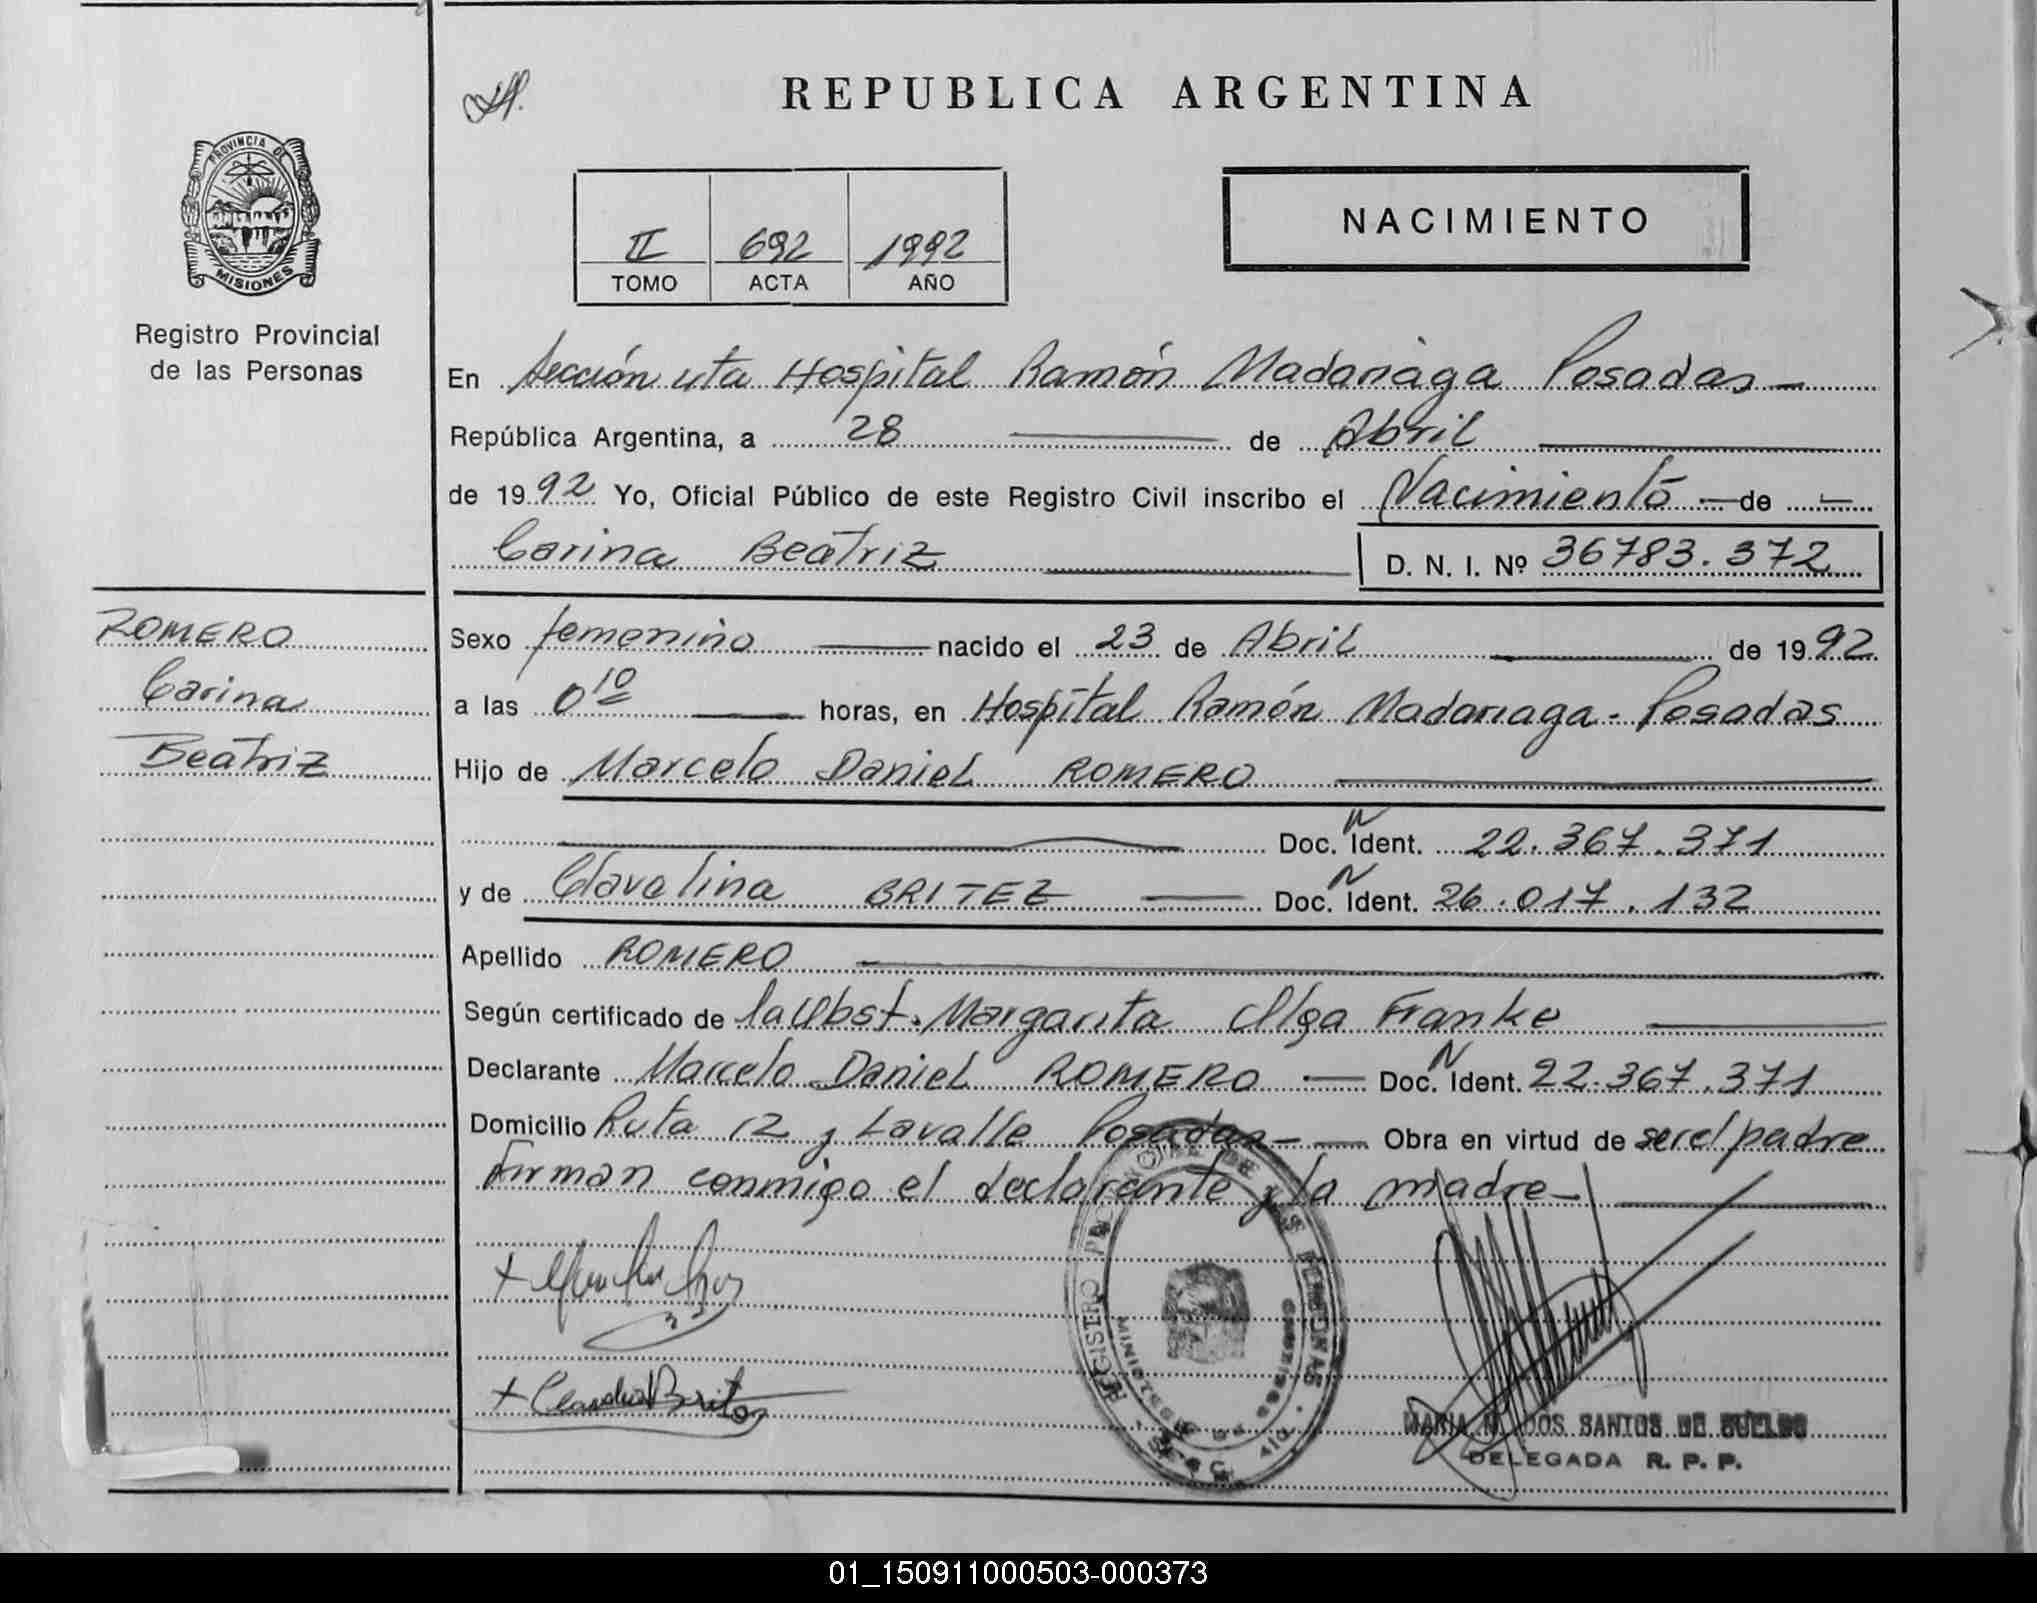 REPUBLICA ARGENTINA
PROVINCIA DE
MISIONES
Registro Provincial
de las Personas
II 692 1992
TOMO ACTA AÑO
NACIMIENTO
En Sección 4ta Hospital Ramón Madariaga Posadas
República Argentina, a 28 de Abril
de 1992 Yo, Oficial Público de este Registro Civil inscribo el Nacimiento de
Carina Beatriz D. N. I. Nº 36783.372
ROMERO
Carina
Beatriz
Sexo femenino nacido el 23 de Abril de 1992
a las 0 10 horas, en Hospital Ramón Madariaga - Posadas
Hijo de Marcelo Daniel ROMERO
Doc. N Ident. 22.367.371
y de BRITEZ Doc. N Ident. 26.017.132
Apellido ROMERO
Según certificado de la Obst. Margarita Olga Franke
Declarante Marcelo Daniel ROMERO Doc. N Ident. 22.367.371
Domicilio Ruta 12 y Lavalle Posadas Obra en virtud de ser el padre
Firman conmigo el declarante y la madre
REGISTRO DE LAS PERSONAS
MARIA N. DOS SANTOS DE
DELEGADA R. P. P.
01_150911000503-000373